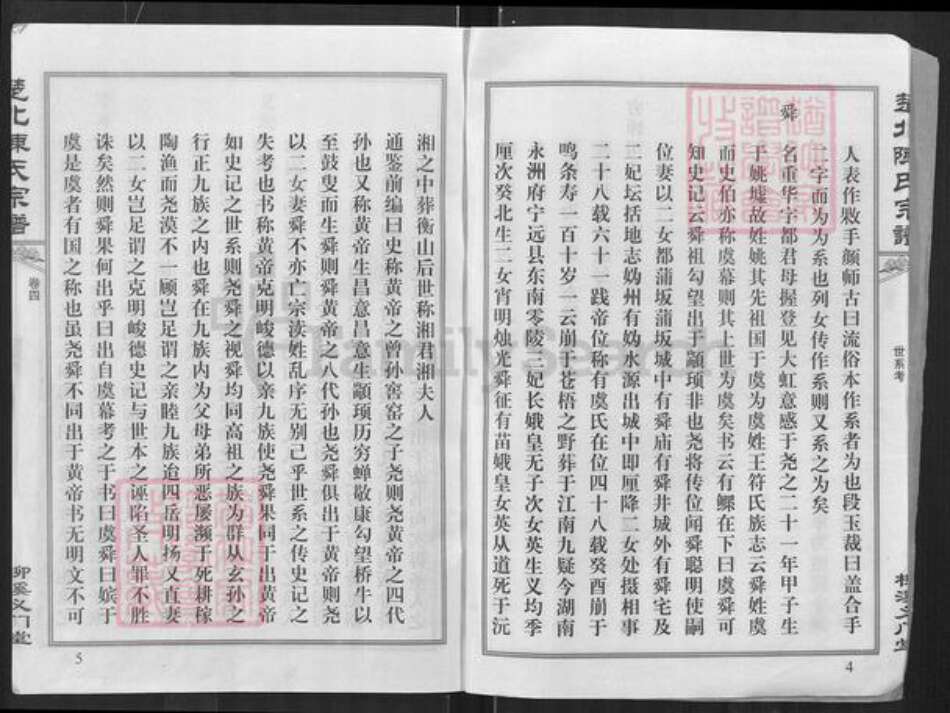 楚北陈氏宗谱
世系考
柳溪义门堂
人表作敤手颜师古曰流俗本作系者为也段玉裁曰盖合手
二字而为为系也列女传作系则又系之为矣
舜
名重华字都君母握登见大虹意感于尧之二十一年甲子生
于姚墟故姓姚其先祖国于虞为虞姓王符氏族志云舜姓虞
而史伯亦称虞幕则其上世为虞矣书云有鳏在下曰虞舜可
知史记云舜祖勾望出于颛顼非也尧将传位闻舜聪明使嗣
位妻以二女都蒲坂蒲坂城中有舜庙有舜井城外有舜宅及
二妃坛括地志妫州有妫水源出城中即厘降二女处摄相事
二十八载六十一践帝位称有虞氏在位四十八载癸酉崩于
鸣条寿一百十岁一云崩于苍梧之野葬于江南九疑今湖南
永洲府宁远县东南零陵三妃长娥皇无子次女英生义均季
厘次癸北生二女宵明烛光舜征有苗娥皇女英从道死于沅
4
湘之中葬衡山后世称湘君湘夫人
通鉴前编曰史称黄帝之曾孙窖窑之子尧则尧黄帝之四代
孙也又称黄帝生昌意昌意生颛顼历穷蝉敬康勾望桥牛以
至鼓叟而生舜则舜黄帝之八代孙也尧舜俱出于黄帝则尧
以二女妻舜不亦亡宗渎姓乱序无别己乎世系之传史记之
失考也书称黄帝克明峻德以亲九族使尧舜果同于出黄帝
如史记之世系则尧舜之视舜均同高祖之族为群从玄孙之
行正九族之内也舜在九族内为父母弟所恶屡濒于死耕稼
陶渔而尧漠不一顾岂足谓之亲睦九族迨四岳明扬又直妻
以二女岂足谓之克明峻德史记与世本之诬陷圣人罪不胜
诛矣然则舜果何出乎曰出自虞幕考之于书曰虞舜曰嫔于
虞是虞者有国之称也虽尧舜不同出于黄帝书无明文不可
5
楚北陈氏宗谱
卷四
柳溪义门堂
FamilySearch